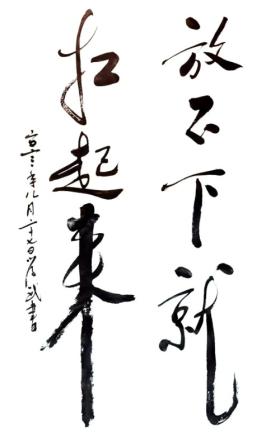 放不下就
扛起来
二〇二三年八月二十七日